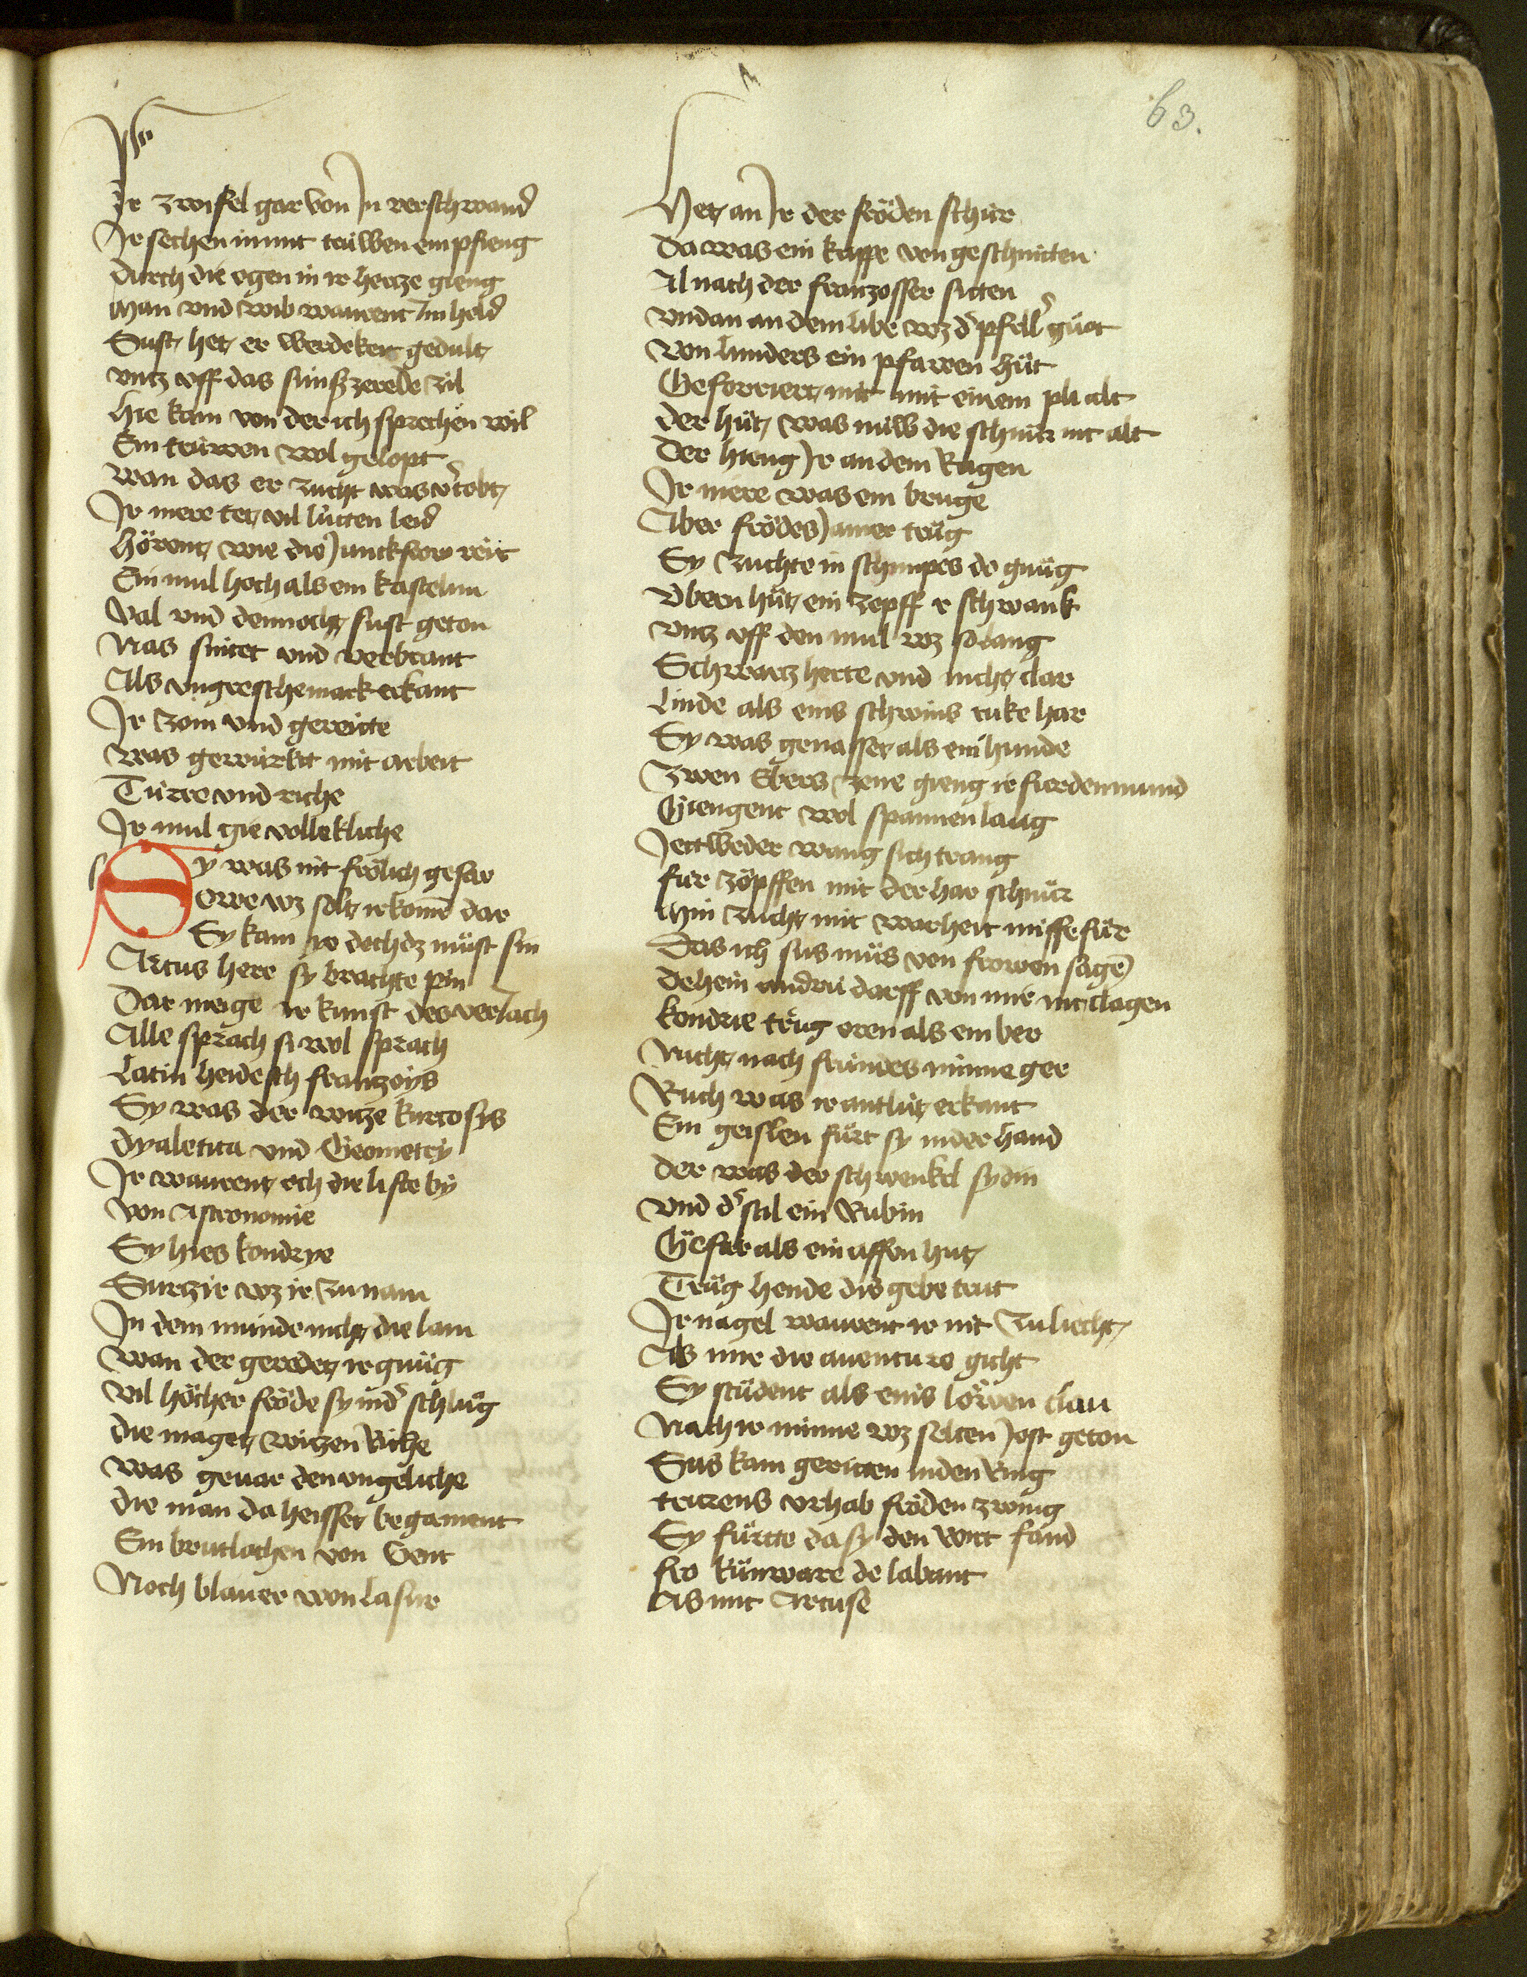 63.
Ir zwifel gar von In verschwand
Ir sechen inunt trüwen empfieng
Durch die ogen in ir hercze gieng
Man vnd wib warent Im hold
Sust het er werdekeit gedult
vntz vff das sünfzerede zil
hie kam von der ich sprechen wil
Ein trüwen wol gelopt
wan das er zucht was vertobt
Ir mere tet vil lütten leid
hörent wie die Junckfrow reit
Ein mul hoch als ein kastelan
Val vnd dennocht sust geton
Nas snitet vnd verbrant
Als vngerschemarck erkant
Ir zom vnd gereitte
was gewürkit mit arbeit
Türre vnd riche
Ir mul gie vollekliche
Sy was nit frölich gefar
Owe wz solt ir komen dar
Sy kam ye doch dz müst sin
Artus here sy brachte pin
Der meige ir kunst des verlach
Alle sprach si wol sprach
Latin heidesch franzoys
Sy was der witze kurtosys
Dyaletica vnd Geometry
Ir warent och die liste by
von Astronomie
Sy hies kondrye
Surzir wz ir zunam
In dem munde nicht die lam
wan der geredet ir gnüg
vil höcher fröde sy inder schlüg
die maget witzen Riche
was gevar den vngeliche
die man da heisset begament
Ein brutlachen von Gent
Noch blauer won Lasur
Het an Ir der fröden schur
Da was ein kappe von geschnitten
Al nach der franzosser sitten
vndan an dem libe wz der pfeller güot
von lunders ein pfawen hüt
Geforriert mit mit einem plialt
der hüt was nüw die schnür nit alt
Der hieng Ir an dem Rugen
Ir mere was ein bruge
Aber frödes Jamer trüg
Sy zuchte in schimpes do gnüg
Vbern hüt ein zopff ir schwank
vntz vff den mul wz so lang
Schwartz herte vnd nicht clar
Linde als eins schwins ruke har
Sy was genasset als ein hunde
Zwen Ebers zene gieng ir fürden mund
Giengent wol spannen lang
Jettweder wang sich trang
für zöpffen mit der har schnür
Min zucht mit warheit missefür
Das ich sus müs von frowen sagen
dehein andrü darff von mir nit clagen
kondrie trüg oren als ein ber
Nicht nach fründes minne ger
Ruch was ir antlüt erkant
Ein geislen fürt sy in der hand
der was der schwenkel sydin
vnd der stil ein Rubin
Gefar als ein affen hut
Trüg hende dis gebe trut
Ir nagel warent ir nit zuliecht
Als mir die auenture gicht
Sy stüdent als eins löwen clau
Nach ir minne wz selten Jost geton
Sus kam geritten in den Ring
trurens vrhab fröden zwing
Sy fürtte da sy den wirt fand
fro künware de labant
As mit Artuse